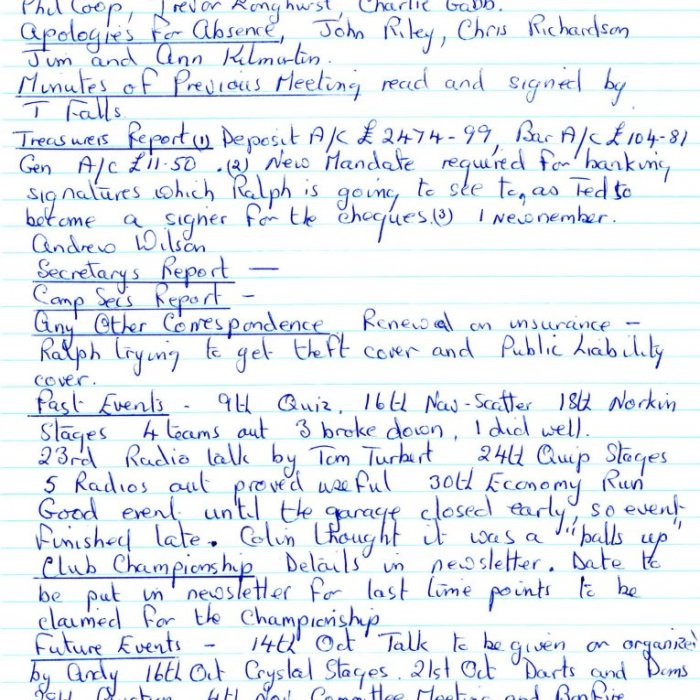 Phil Coop, Trevor Longhurst, Charlie Gabb.
Apologies For Absence, John Riley, Chris Richardson
Jim and Ann Kilmartin.
Minutes of Previous Meeting read and signed by
T Falls
Treasurers Report (1) Deposit A/C £2474-99, Bar A/C £104-81
Gen A/C £11-50. (2) New Mandate required for banking
signatures which Ralph is going to see to, as Ted to
become a signer for the cheques. (3) 1 New member.
Andrew Wilson
Secretarys Report —
Comp Secs Report -
Any Other Correspondence Renewal on insurance -
Ralph trying to get theft cover and Public Liability
cover.
Past Events - 9th Quiz, 16th Nav-Scatter 18th Norkin
Stages 4 teams out 3 broke down, 1 did well.
23rd Radio talk by Tom Turbert 24th Quip Stages
5 Radios out proved useful 30th Economy Run
Good event until the garage closed early, so event
finished late. Colin thought it was a "balls up"
Club Championship Details in newsletter. Date to
be put in newsletter for last time points to be
claimed for the Championship
Future Events - 14th Oct Talk to be given or organized
by Andy 16th Oct Crystal Stages. 21st Oct Darts and Doms
4th Nov Committee Meeting and